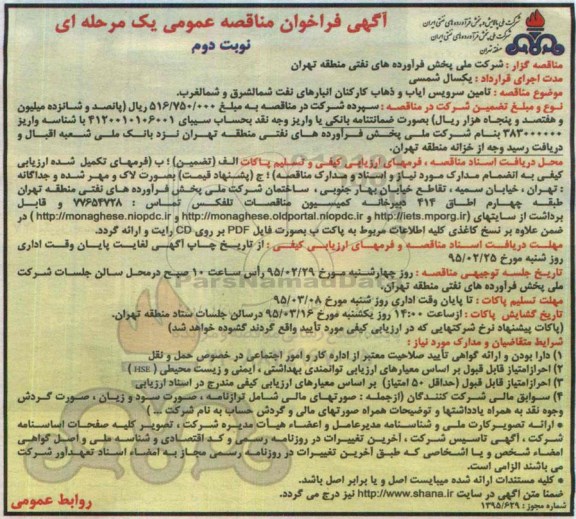 شرکت ملی پالایش و پخش فرآورده های نفتی ایران
شرکت ملی پخش فرآورده های نفتی ایران
منطقه تهران
آگهی فراخوان مناقصه عمومی یک مرحله ای
نوبت دوم
مناقصه گزار : شرکت ملی پخش فرآورده های نفتی منطقه تهران
مدت اجرای قرارداد : یکسال شمسی
موضوع مناقصه : تامین سرویس ایاب و ذهاب کارکنان انبارهای نفت شمالشرق و شمالغرب.
نوع و مبلغ تضمین شرکت در مناقصه : سپرده شرکت در مناقصه به مبلغ ۵۱۶/۷۵۰/۰۰۰ ریال (پانصد و شانزده میلیون
و هفتصد و پنجاه هزار ریال) بصورت ضمانتنامه بانکی یا واریز وجه نقد بحساب سیبای ۴۱۲۰۰۱۰۱۰۶۰۰۱ با شناسه واریز
۳۸۳۰۰۰۰۰۰ بنام شرکت ملی پخش فرآورده های نفتی منطقه تهران نزد بانک ملی شعبه اقبال و
دریافت رسید وجه از خزانه منطقه تهران.
محل دریافت اسناد مناقصه ، فرمهای ارزیابی کیفی و تسلیم پاکات الف (تضمین) ؛ ب (فرمهای تکمیل شده ارزیابی
کیفی به انضمام مدارک مورد نیاز و اسناد و مدارک مناقصه) ؛ ج (پیشنهاد قیمت) بصورت لاک و مهر شده و جداگانه
: تهران ، خیابان سمیه ، تقاطع خیابان بهار جنوبی ، ساختمان شرکت ملی پخش فرآورده های نفتی منطقه تهران
طبقه چهارم اطاق ۴۱۴ دبیرخانه کمیسیون مناقصات تلفکس تماس : ۷۷۶۵۴۷۲۸ و قابل
برداشت از سایتهای (http://iets.mporg.ir و http://monaghese.oldportal.niopdc.ir و http://monaghese.niopdc.ir ) در
ضمن علاوه بر نسخ کاغذی کلیه اطلاعات مربوط به پاکت ب بصورت فایل PDF بر روی CD رایت و ارائه گردد.
مهلت دریافت اسناد مناقصه و فرمهای ارزیابی کیفی : از تاریخ چاپ آگهی لغایت پایان وقت اداری
روز شنبه مورخ ۹۵/۰۲/۲۵
تاریخ جلسه توجیهی مناقصه : روز چهارشنبه مورخ ۹۵/۰۲/۲۹ رأس ساعت ۱۰ صبح درمحل سالن جلسات شرکت
ملی پخش فرآورده های نفتی منطقه تهران.
مهلت تسلیم پاکات : تا پایان وقت اداری روز شنبه مورخ ۹۵/۰۳/۰۸
تاریخ گشایش پاکات : ازساعت ۱۴:۰۰ روز یکشنبه مورخ ۹۵/۰۳/۱۶ درسالن جلسات ستاد منطقه تهران.
(پاکات پیشنهاد نرخ شرکتهایی که در ارزیابی کیفی مورد تأیید واقع گردند گشوده خواهد شد)
شرایط متقاضیان و مدارک مورد نیاز :
۱) دارا بودن و ارائه گواهی تأیید صلاحیت معتبر از اداره کار و امور اجتماعی در خصوص حمل و نقل
۲) احرازامتیاز قابل قبول بر اساس معیارهای ارزیابی توانمندی بهداشتی ، ایمنی و زیست محیطی ( HSE )
۳) احرازامتیاز قابل قبول (حداقل ۵۰ امتیاز) بر اساس معیارهای ارزیابی کیفی مندرج در اسناد ارزیابی
۴) سوابق مالی شرکت کنندگان (ازجمله : صورتهای مالی شامل ترازنامه ، صورت سود و زیان ، صورت گردش
وجوه نقد به همراه یادداشتها و توضیحات همراه صورتهای مالی و گردش حساب به نام شرکت ... )
● ارائه تصویرکارت ملی و شناسنامه مدیرعامل و اعضاء هیأت مدیره شرکت ، تصویر کلیه صفحات اساسنامه
شرکت ، آگهی تاسیس شرکت ، آخرین تغییرات در روزنامه رسمی ، کد اقتصادی و شناسه ملی و اصل گواهی
امضاء شخص و یا اشخاصی که طبق آخرین تغییرات در روزنامه رسمی مجاز به امضاء اسناد تعهدآور شرکت
می باشند الزامی است.
● کلیه مستندات ارائه شده میبایست اصل و یا برابر اصل باشد.
ضمنا متن آگهی در سایت http://www.shana.ir نیز درج می گردد.
شماره مجوز : ۱۳۹۵/۶۲۹
روابط عمومی
ParsNamadData